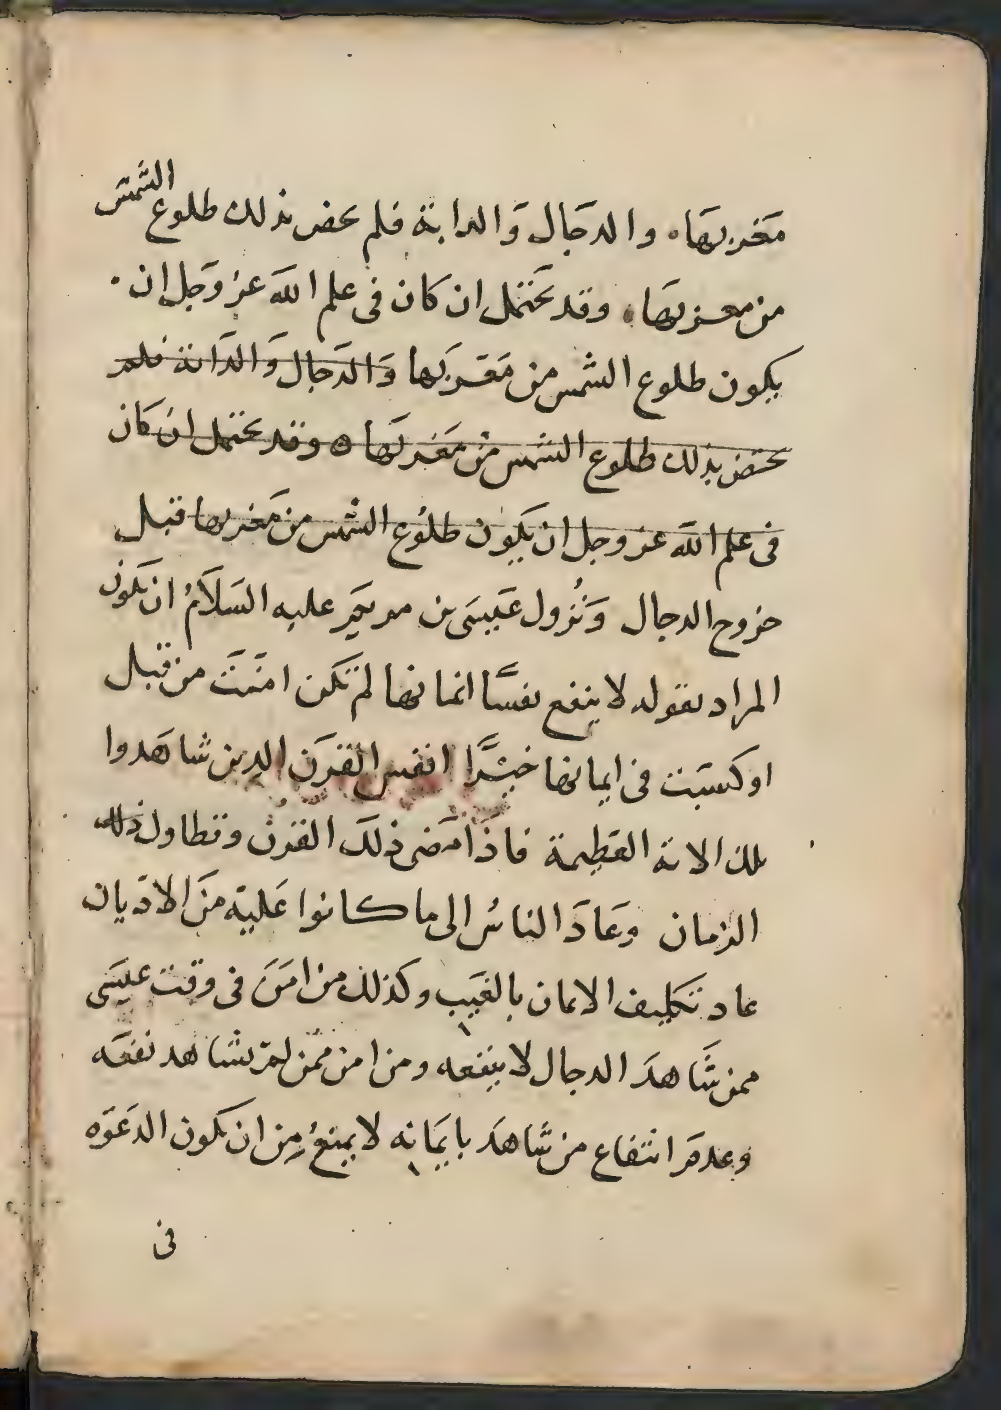 مَغربهَا، والدجَال وَالدابة فلم يخص بذلك طلوع الشمس
من مغربهَا، وقد يحتمل ان كان فى علم اللّه عز وَجل ان
يكون طلوع الشمس من مَغربها وَالدَجال وَالدَابة فلم
يختص بذلك طلوع الشمس من مَغربهَا ه وقد يحتمل ان كان
فى علم اللّه عز وجل ان يكون طلُوع الشمس من مَغربها قبل
خروج الدجال وَنُزول عَيسَى بن مريَم عليه السَلَامُ ان تكون
المراد بقوله لا ينفع نفسًا ايمانها لم تكن امنَتَ من قبل
او كسَبَت فى ايمانها خيرًا انفس القرَن الذين شاهَدوا
تلك الاية العَظيمة فاذَا مَضى ذلَك القرن وتطاول ذلك
الزمان وَعَادَ الناسُ الى ما كانوا عَليه مَن الادَيان
عاد تكليف الايمان بالغَيب وكذلك من امَنَ فى وقت عيسَى
ممن شَاهدَ الدجال لا ينفعه ومن امن ممّن لم يشاهد نفعَه
وعدمَ انتفاع من شَاهَد بايمَانه لا يمنعُ مِن ان تكون الدَعوَه
فى